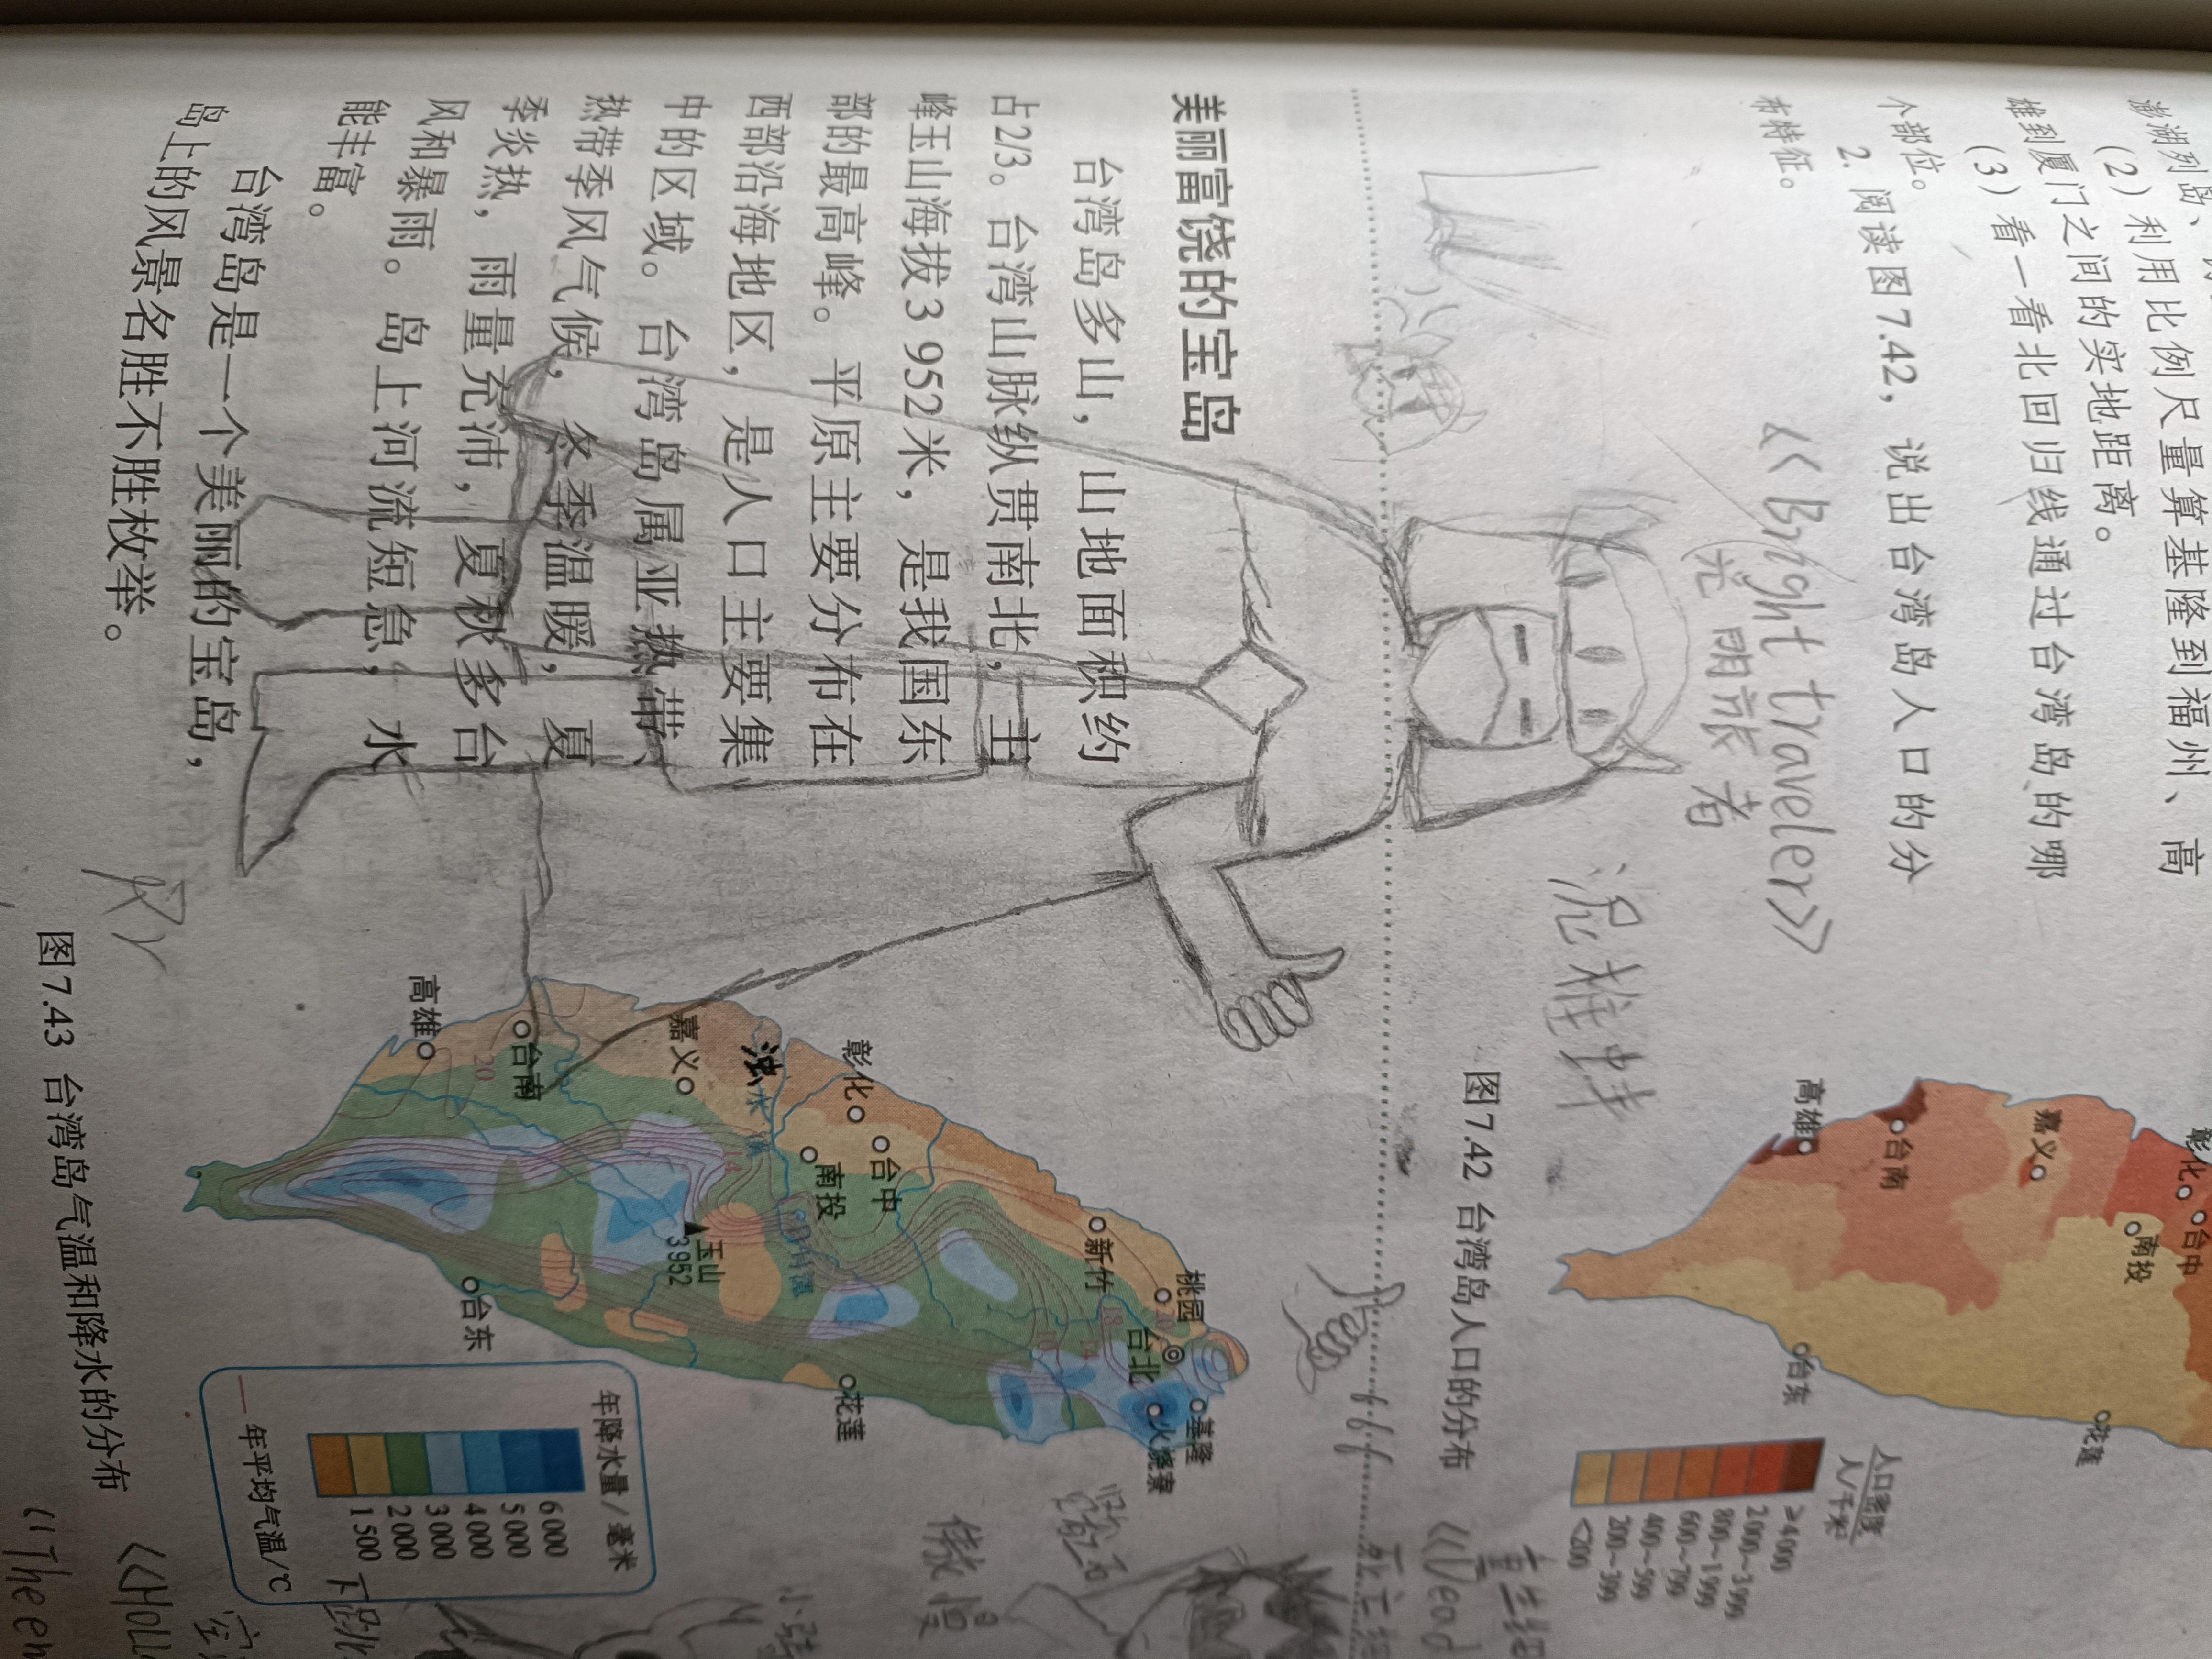 (2) 利用比例尺量算基隆到福州、高
雄到厦门之间的实地距离。
(3) 看一看北回归线通过台湾岛的哪
个部位。
2. 阅读图7.42，说出台湾岛人口的分
布特征。
《Bright traveler》
光明旅者
美丽富饶的宝岛
台湾岛多山，山地面积约
占2/3。台湾山脉纵贯南北，主
峰玉山海拔3 952米，是我国东
部的最高峰。平原主要分布在
西部沿海地区，是人口主要集
中的区域。台湾岛属亚热带、
热带季风气候，冬季温暖，夏
季炎热，雨量充沛，夏秋多台
风和暴雨。岛上河流短急，水
能丰富。
台湾岛是一个美丽的宝岛，
岛上的风景名胜不胜枚举。
彰化
台中
南投
嘉义
台南
高雄
台东
花莲
人口密度
人/千米²
≥4000
2000~3999
800~1999
600~799
400~599
200~399
<200
图7.42 台湾岛人口的分布
666
《Dead
傲慢
桃园
台北
基隆
火烧寮
新竹
台中
彰化
南投
浊水溪
嘉义
玉山
3952
花莲
台南
高雄
台东
20
14
18
年降水量/毫米
6000
5000
4000
3000
2000
1500
年平均气温/℃
图7.43 台湾岛气温和降水的分布